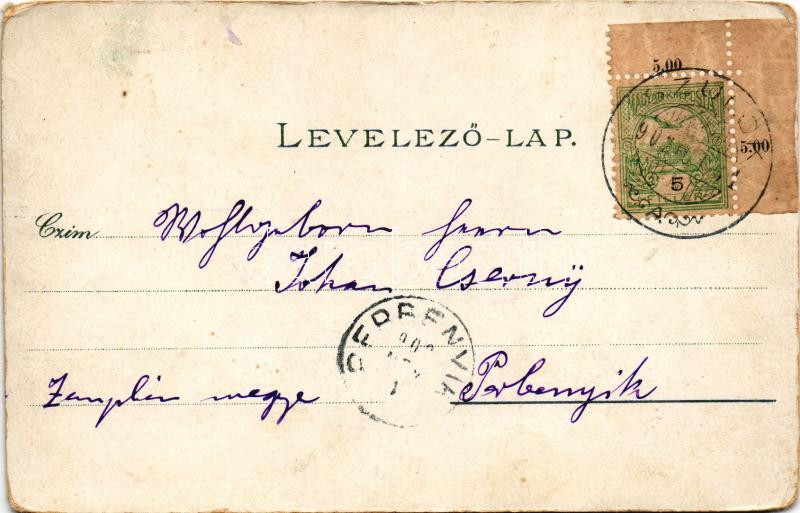 5.00
MAGYAR KIR. POSTA
5.00
LEVELEZŐ-LAP.
5
FILLÉR
Czim Wohlgeborn Herrn
Johan Cserny
Zemplén megye Perbenyik